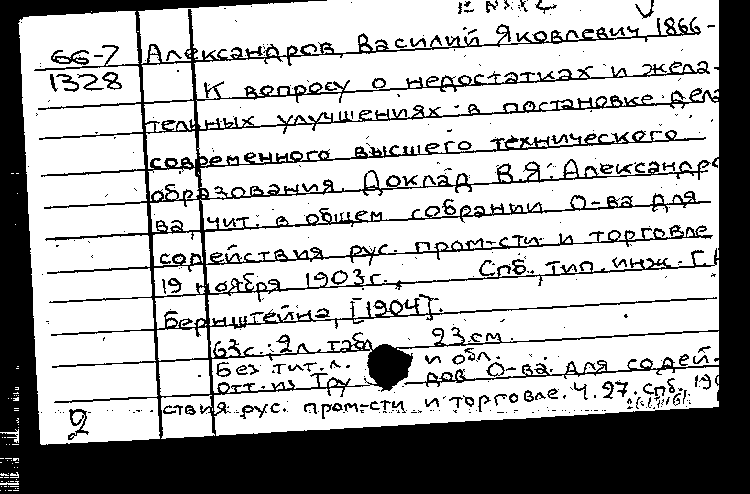 66-7 Александров, Василий Яковлевич, 1866-
1328 К вопросу о недостатках и жела-
тельных улучшениях в постановке дела
современного высшего технического
образования. Доклад В.Я. Александро
ва, чит. в общем собрании О-ва для
содействия рус. пром-сти и торговле
19 ноября 1903г., Спб., тип. инж. Г.А
Бернштейна, [1904].
63с.; 2л. табл. 23см.
Без тит. л. и обл.
Отт. из Тру дов О-ва для содей-
ствия рус. пром-сти и торговле. Ч. 27. Спб. 190
2